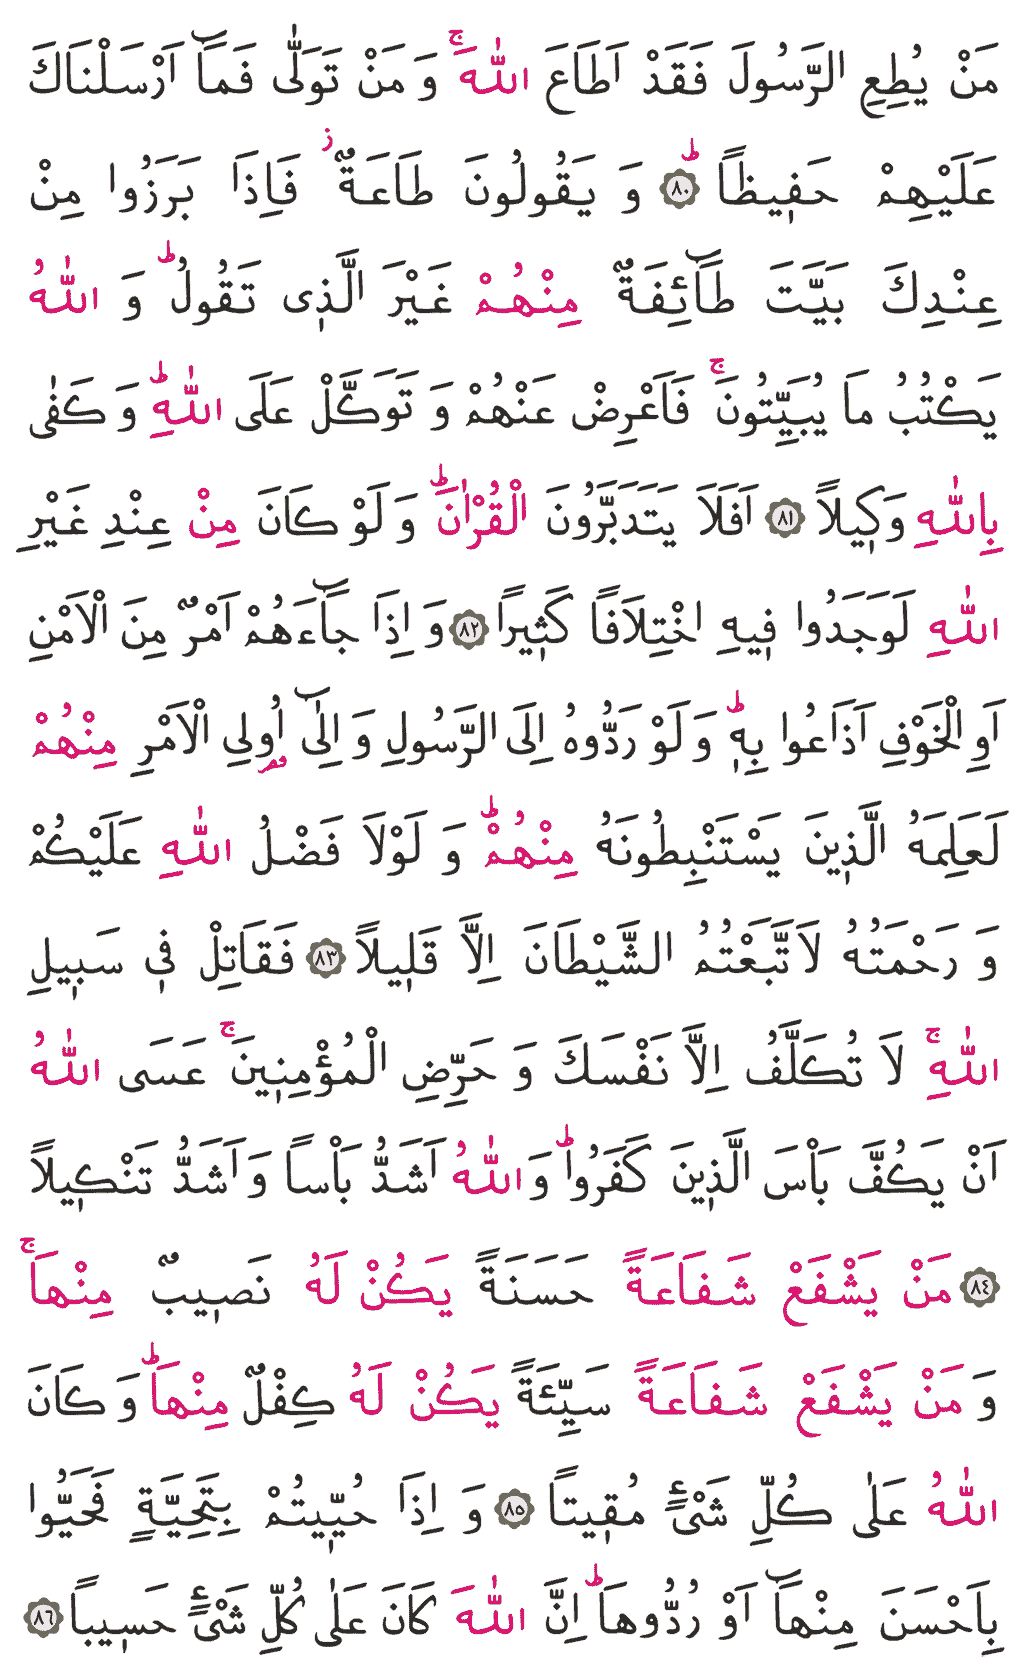 مَنْ يُطِعِ الرَّسُولَ فَقَدْ اَطَاعَ اللّٰهَۚ وَ مَنْ تَوَلّٰى فَمَآ اَرْسَلْنَاكَ
عَلَيْهِمْ حَفٖيظاًۜ ﴿٨٠﴾ وَ يَقُولُونَ طَاعَةٌۘ فَاِذَا بَرَزُوا مِنْ
عِنْدِكَ بَيَّتَ طَٓائِفَةٌ مِنْهُمْ غَيْرَ الَّذٖى تَقُولُۜ وَ اللّٰهُ
يَكْتُبُ مَا يُبَيِّتُونَۚ فَاَعْرِضْ عَنْهُمْ وَ تَوَكَّلْ عَلَى اللّٰهِۜ وَ كَفٰى
بِاللّٰهِ وَكٖيلاً ﴿٨١﴾ اَفَلَا يَتَدَبَّرُونَ الْقُرْاٰنَۜ وَ لَوْ كَانَ مِنْ عِنْدِ غَيْرِ
اللّٰهِ لَوَجَدُوا فٖيهِ اخْتِلَافاً كَثٖيراً ﴿٨٢﴾ وَ اِذَا جَٓاءَهُمْ اَمْرٌ مِنَ الْاَمْنِ
اَوِ الْخَوْفِ اَذَاعُوا بِهٖۜ وَ لَوْ رَدُّوهُ اِلَى الرَّسُولِ وَ اِلٰٓى اُو۬لِى الْاَمْرِ مِنْهُمْ
لَعَلِمَهُ الَّذٖينَ يَسْتَنْبِطُونَهُ مِنْهُمْۜ وَ لَوْلَا فَضْلُ اللّٰهِ عَلَيْكُمْ
وَ رَحْمَتُهُ لَاتَّبَعْتُمُ الشَّيْطَانَ اِلَّا قَلٖيلاً ﴿٨٣﴾ فَقَاتِلْ فٖى سَبٖيلِ
اللّٰهِۚ لَا تُكَلَّفُ اِلَّا نَفْسَكَ وَ حَرِّضِ الْمُؤْمِنٖينَۚ عَسَى اللّٰهُ
اَنْ يَكُفَّ بَاْسَ الَّذٖينَ كَفَرُواۜ وَ اللّٰهُ اَشَدُّ بَاْساً وَ اَشَدُّ تَنْكٖيلاً
﴿٨٤﴾ مَنْ يَشْفَعْ شَفَاعَةً حَسَنَةً يَكُنْ لَهُ نَصٖيبٌ مِنْهَاۚ
وَ مَنْ يَشْفَعْ شَفَاعَةً سَيِّئَةً يَكُنْ لَهُ كِفْلٌ مِنْهَاۜ وَ كَانَ
اللّٰهُ عَلٰى كُلِّ شَىْءٍ مُقٖيتاً ﴿٨٥﴾ وَ اِذَا حُيّٖيتُمْ بِتَحِيَّةٍ فَحَيُّوا
بِاَحْسَنَ مِنْهَٓا اَوْ رُدُّوهَاۜ اِنَّ اللّٰهَ كَانَ عَلٰى كُلِّ شَىْءٍ حَسٖيباً ﴿٨٦﴾